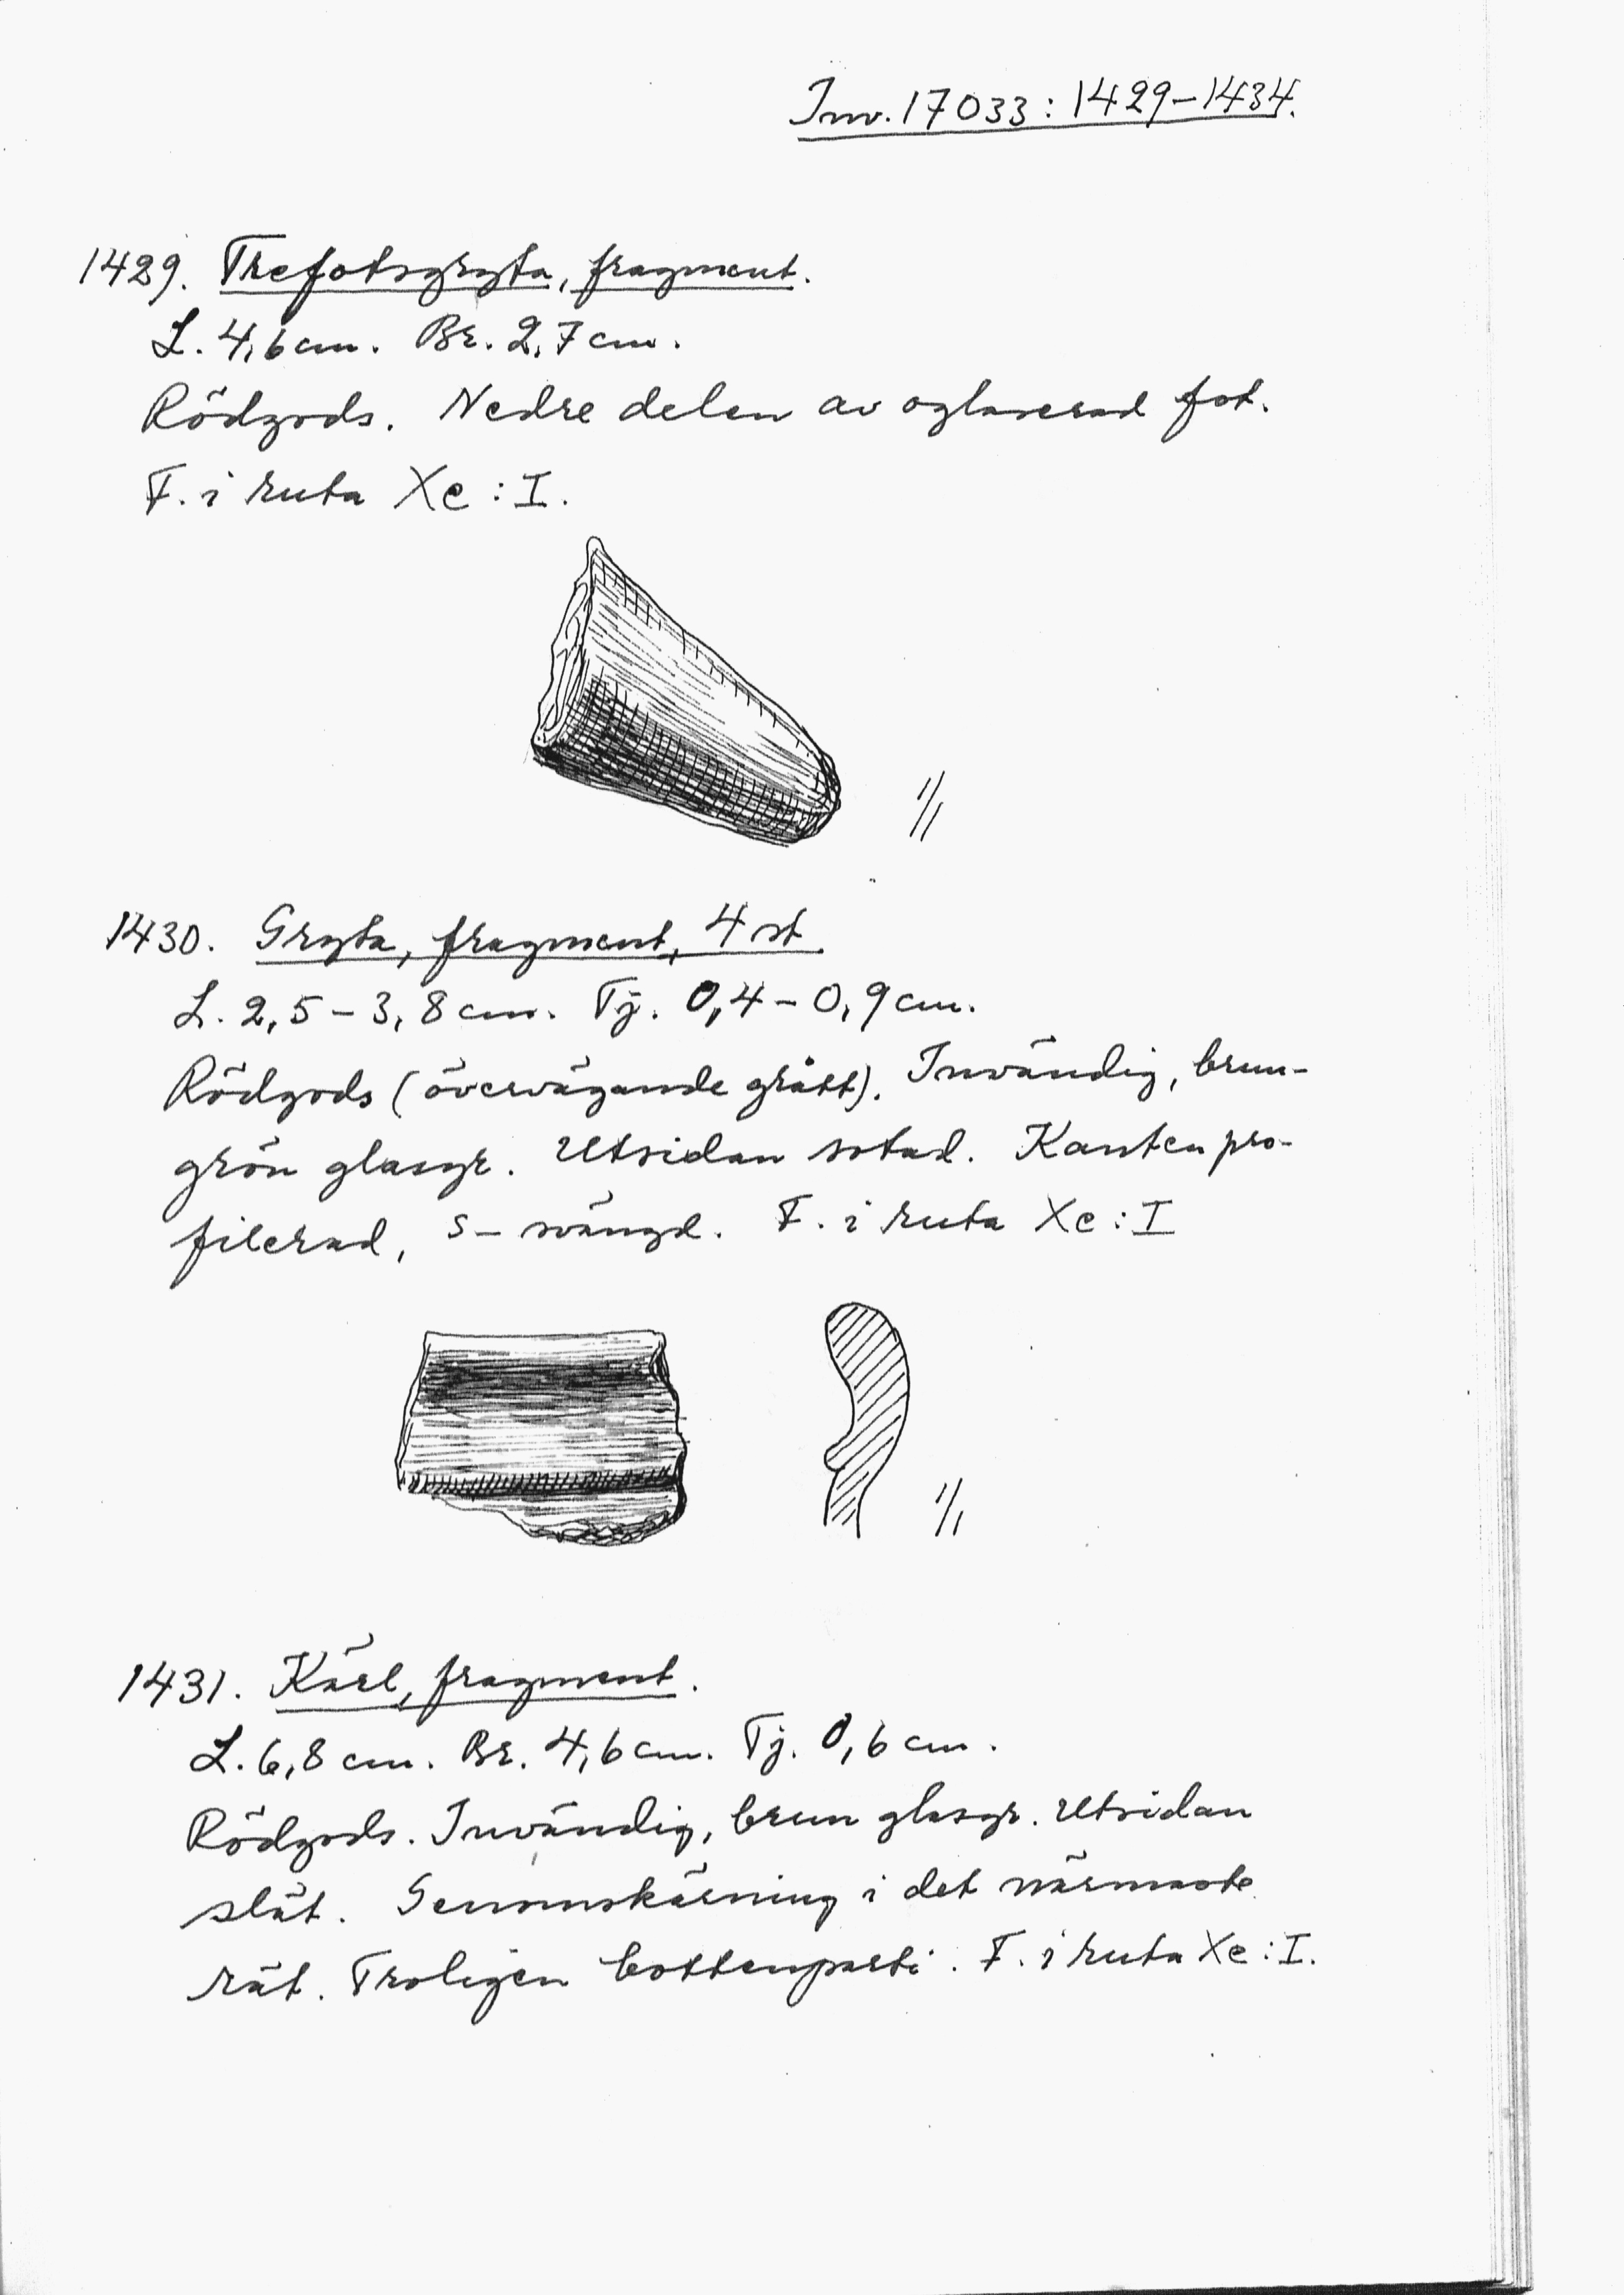 Inv. 17033: 1429-1434.
1429. Trefotsgryta, fragment.
L. 4,6 cm. Br. 2,7 cm.
Rödgods. Nedre delen av oglaserad fot.
F. i ruta Xc : I.
1/1
1430. Gryta, fragment, 4 st.
L. 2,5 - 3,8 cm. Tj. 0,4 - 0,9 cm.
Rödgods (övervägande grått). Invändig, brun-
grön glasyr. Utsidan sotad. Kanten pro-
filerad, s- svängd. F. i ruta Xc : I
1/1
1431. Kärl, fragment.
L. 6,8 cm. Br. 4,6 cm. Tj. 0,6 cm.
Rödgods. Invändig, brun glasyr. Utsidan
slät. Genomskärning i det närmaste
rät. Troligen bottenparti. F. i ruta Xc : I.